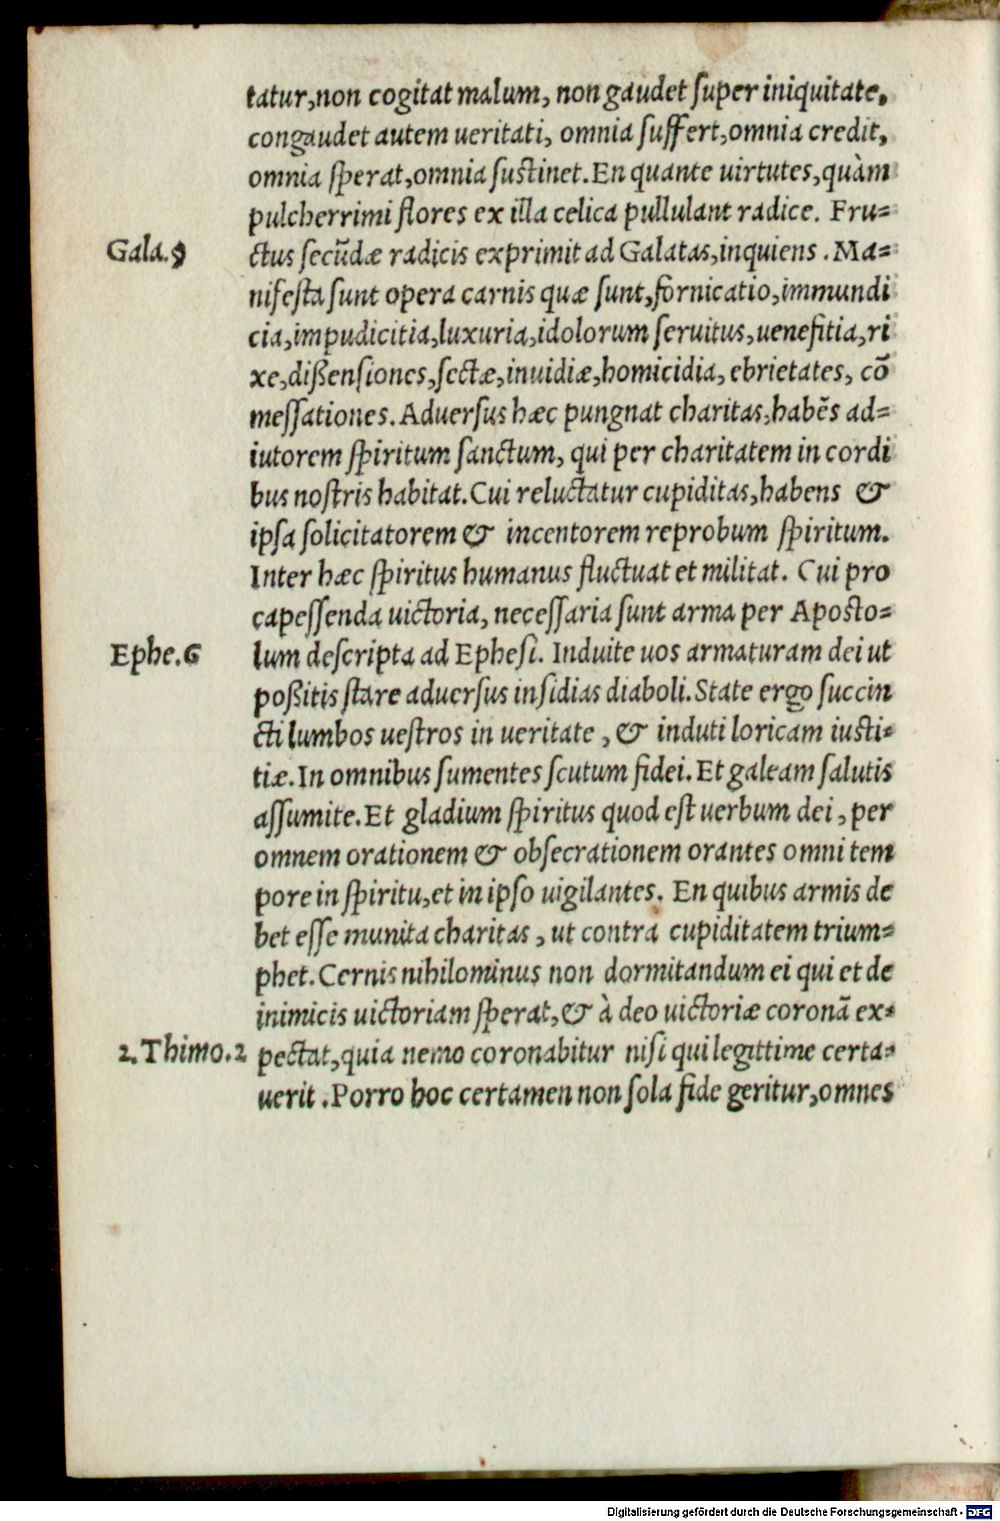 tatur,non cogitat malum, non gaudet super iniquitate,
congaudet autem ueritati, omnia suffert,omnia credit,
omnia sperat,omnia sustinet.En quante uirtutes,quàm
pulcherrimi flores ex illa celica pullulant radice. Fru=
Gala.5
ctus secūdæ radicis exprimit ad Galatas,inquiens .Ma=
nifesta sunt opera carnis quæ sunt,fornicatio,immundi
cia,impudicitia,luxuria,idolorum seruitus,uenefitia,ri
xe,dißensiones,sectæ,inuidiæ,homicidia, ebrietates, cō
messationes.Aduersus hæc pungnat charitas,habēs ad=
iutorem spiritum sanctum, qui per charitatem in cordi
bus nostris habitat.Cui reluctatur cupiditas,habens &
ipsa solicitatorem & incentorem reprobum spiritum.
Inter hæc spiritus humanus fluctuat et militat. Cui pro
capessenda uictoria, necessaria sunt arma per Aposto=
Ephe.6
lum descripta ad Ephesi. Induite uos armaturam dei ut
poßitis stare aduersus insidias diaboli.State ergo succin
cti lumbos uestros in ueritate , & induti loricam iusti=
tiæ.In omnibus sumentes scutum fidei.Et galeam salutis
assumite.Et gladium spiritus quod est uerbum dei , per
omnem orationem & obsecrationem orantes omni tem
pore in spiritu,et in ipso uigilantes. En quibus armis de
bet esse munita charitas , ut contra cupiditatem trium=
phet.Cernis nihilominus non dormitandum ei qui et de
inimicis uictoriam sperat,& à deo uictoriæ coronā ex=
2.Thimo.2
pectat,quia nemo coronabitur nisi qui legittime certa=
uerit .Porro hoc certamen non sola fide geritur,omnes
Digitalisierung gefördert durch die Deutsche Forschungsgemeinschaft - DFG